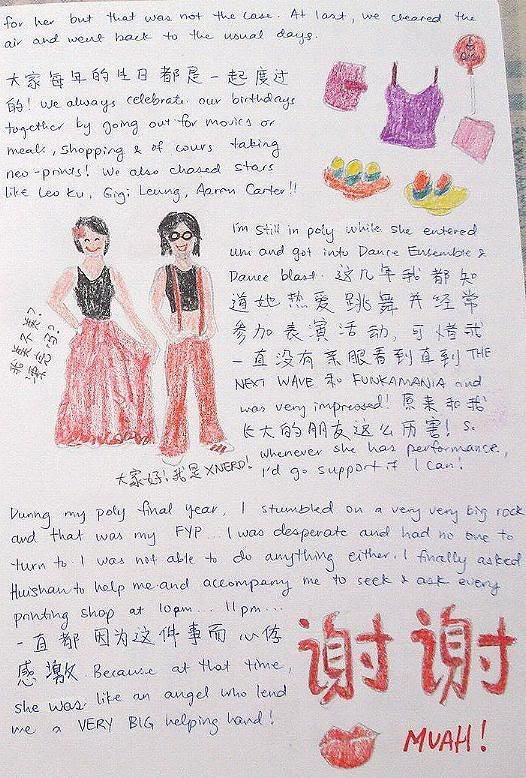 for her but that was not the case. At last, we cleared the
air and went back to the usual days.
大家每年的生日都是一起度过
的! We always celebrate our birthdays
together by going out for movies or
meals, shopping & of cours taking
neo-prints! We also chased stars
like Leo Ku, Gigi Leung, Aaron Carter!!
I'm still in poly while she entered
uni and got into Dance Ensemble &
Dance blast. 这几年我都知
道她热爱跳舞并经常
参加表演活动, 可惜我
一直没有亲眼看到直到 THE
NEXT WAVE 和 FUNKAMANIA and
was very impressed! 原来和我
长大的朋友这么厉害! So
whenever she has performance,
I'd go support if I can!
我美吗?
大家好! 我是 XNERD!
During my poly final year, I stumbled on a very very big rock
and that was my FYP... I was desperate and had no one to
turn to. I was not able to do anything either. I finally asked
Huishan to help me and accompany me to seek & ask every
printing shop at 10pm... 11pm...
一直都因为这件事而心存
感激. Because at that time,
she was like an angel who lend
me a VERY BIG helping hand!
谢谢
MUAH!